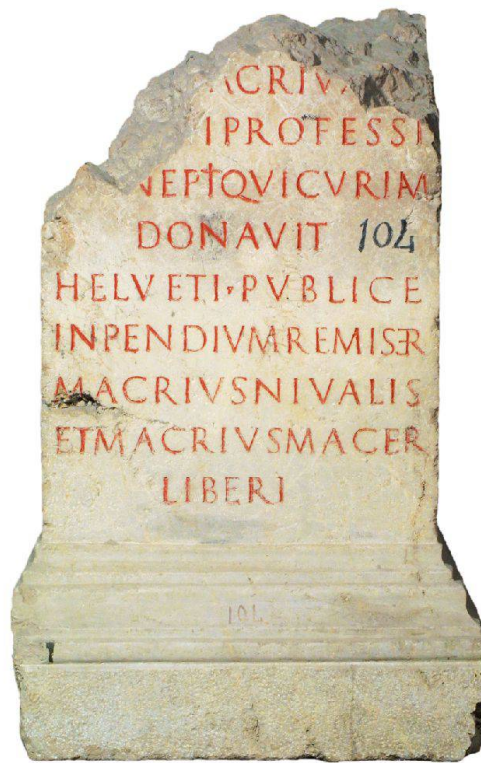 ACRIV
I PROFESSI
NEPT QVI CVRIAM
DONAVIT 104
HELVETI PVBLICE
INPENDIVM REMISER
MACRIVS NIVALIS
ET MACRIVS MACER
LIBERI
104